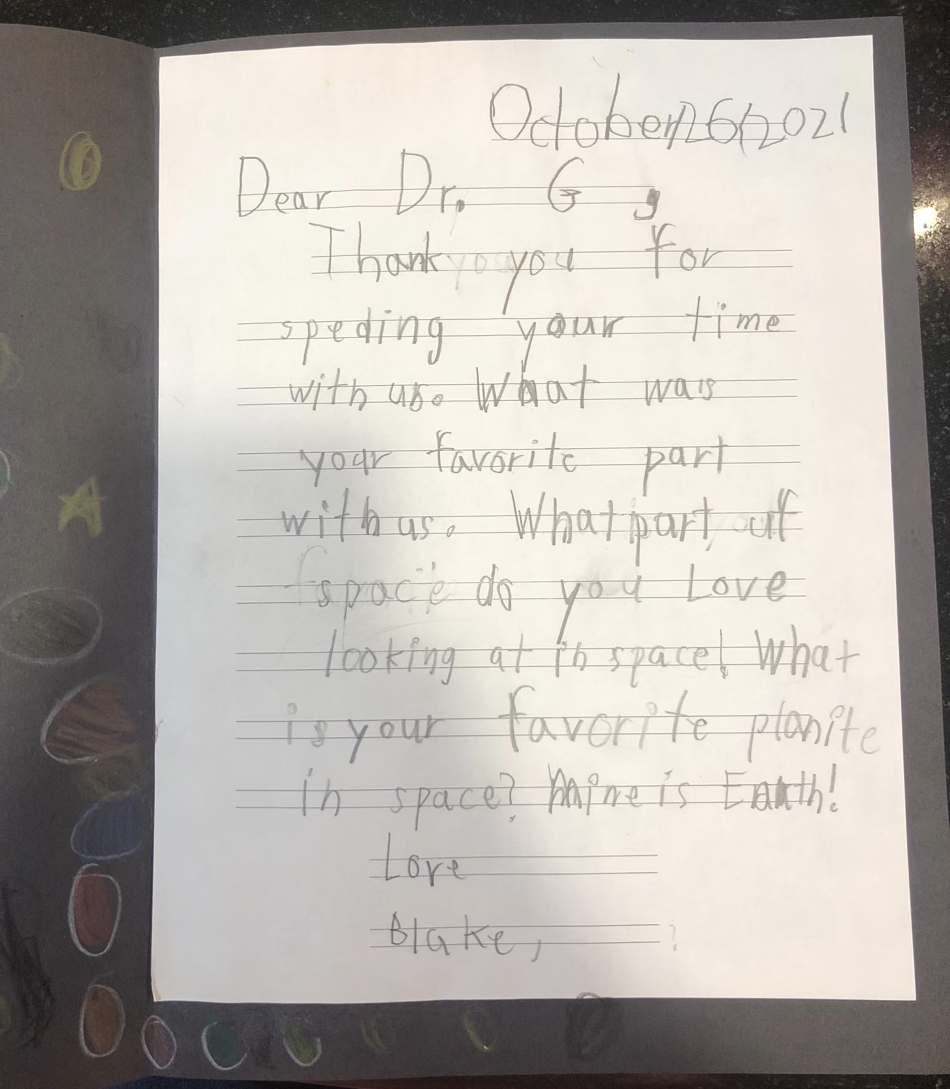 October/26/2021
Dear Dr. G,
Thank you for
speding your time
with us. What was
your favorite part
with us. What part of
space do you Love
looking at in space! What
is your favorite planite
in space? Mine is Earth!
Love
Blake,